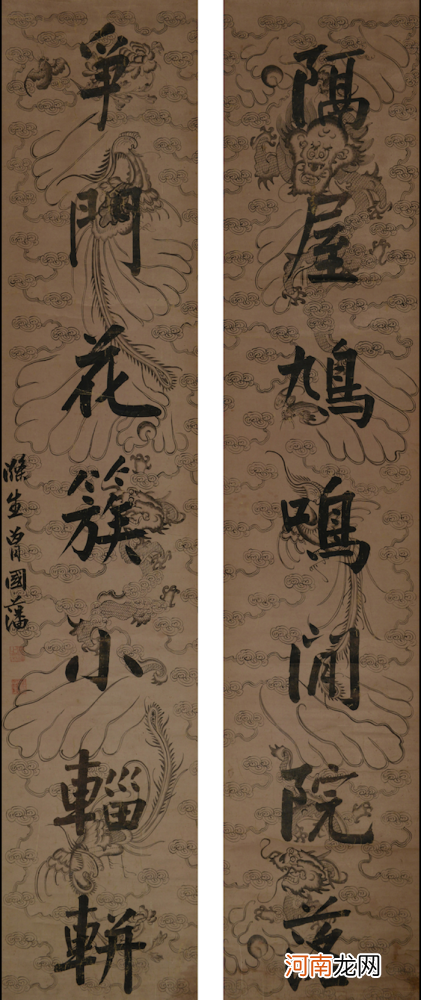 隔屋鳩鳴閒院落
爭門花簇小輜軿
滌生曾國藩
河南龙网